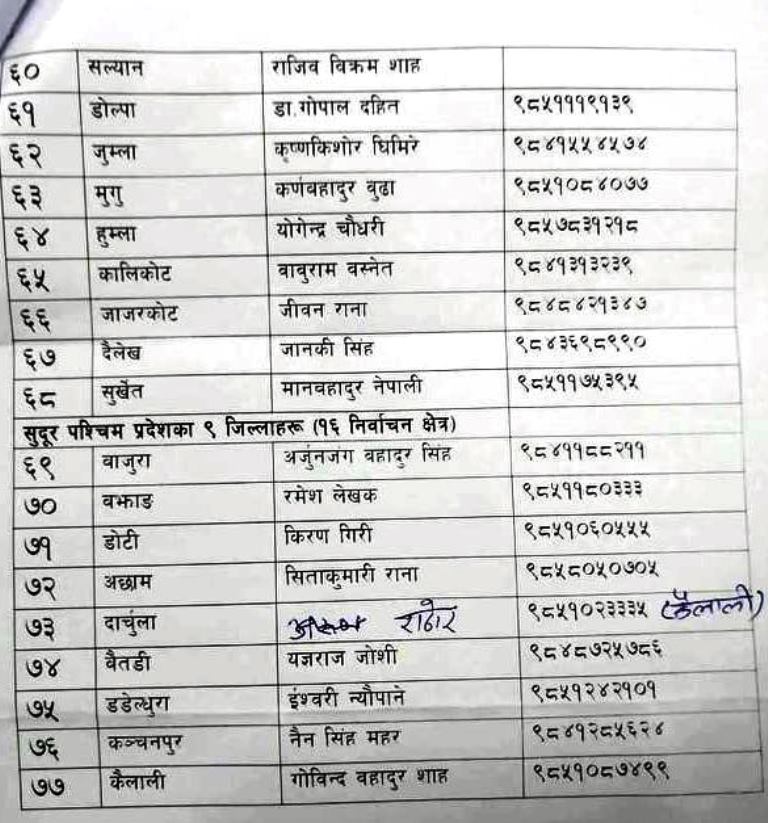 ६० सल्यान राजिव विक्रम शाह
६१ डोल्पा डा.गोपाल दहित ९८५१११९१३९
६२ जुम्ला कृष्णकिशोर घिमिरे ९८४१५५४५७४
६३ मुगु कर्णबहादुर बुढा ९८५१०८४०७७
६४ हुम्ला योगेन्द्र चौधरी ९८५७८३१२१८
६५ कालिकोट वाबुराम वस्नेत ९८४१३१३२३९
६६ जाजरकोट जीवन राना ९८४८४२१३४७
६७ दैलेख जानकी सिंह ९८४३६९८९९०
६८ सुर्खेत मानवहादुर नेपाली ९८५११७५३९५
सुदूर पश्चिम प्रदेशका ९ जिल्लाहरू (१६ निर्वाचन क्षेत्र)
६९ वाजुरा अर्जुनजंग वहादुर सिंह ९८४११८८२११
७० वझाङ रमेश लेखक ९८५११८०३३३
७१ डोटी किरण गिरी ९८५१०६०५५५
७२ अछाम सिताकुमारी राना ९८५८०५०७०५
७३ दार्चुला राठोर ९८५१०२३३३५ (कैलाली)
७४ वैतडी यज्ञराज जोशी ९८४८७२५७८६
७५ डडेल्धुरा ईश्वरी न्यौपाने ९८५१२४२१०१
७६ कञ्चनपुर नैन सिंह महर ९८४१२८५६२४
७७ कैलाली गोविन्द वहादुर शाह ९८५१०८७४९९